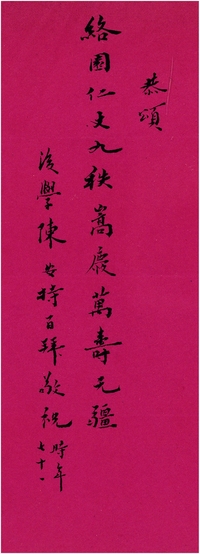 恭頌
絡園仁丈九秩嵩慶萬壽无疆
後學陳安持百拜敬祝時年七十一